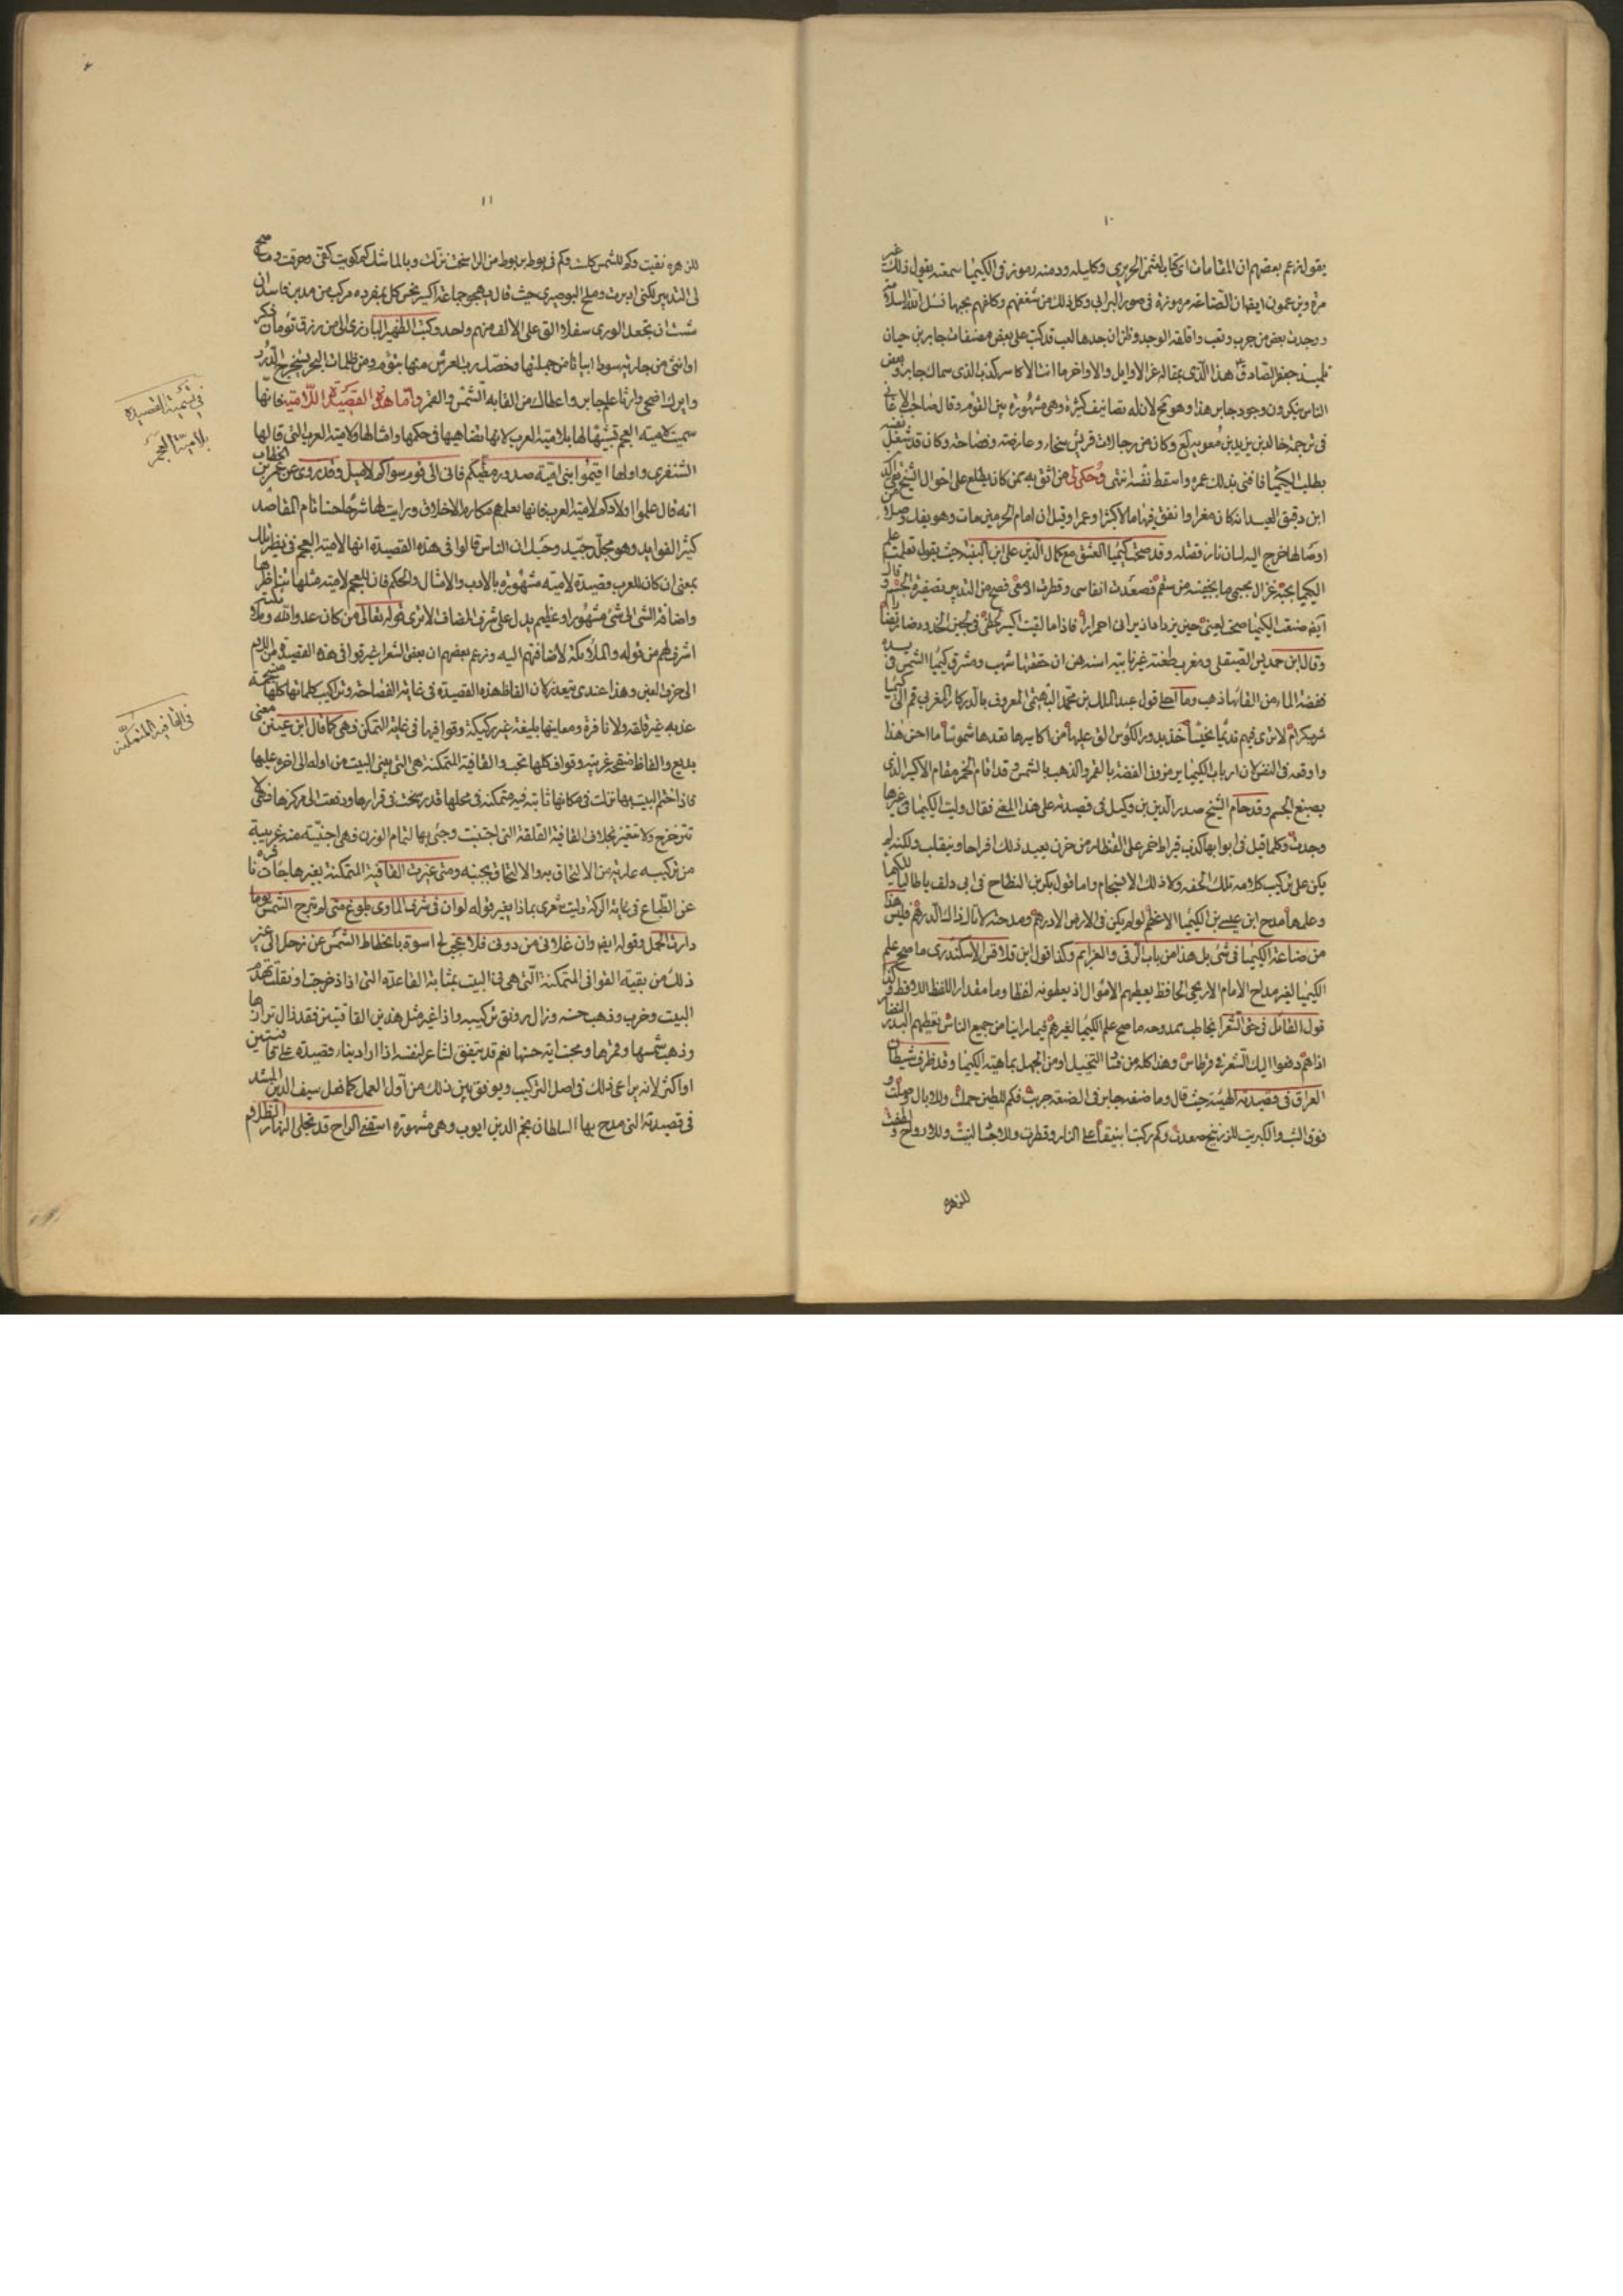 ١٠
يقول وزعم بعضهم ان المقامات اى كتاب الحريرى وكليله ودمنه رموز فى الكيميا سمعته يقول ذلك غير
مرة ويزعمون ايضا ان الصناعة مرموزة فى صور البرابى وكل ذلك من شغفهم وكلفهم بحبها نسل الله السلامة
ووجدت بعض من جرب وتعب واقلقه الوجد وظن ان جدها لعب قد كتب على بعض مصنفات جابر بن حيان
تلميذ جعفر الصادق هذا الذى بمقاله غر الاوايل والاواخر ما انت الا كاسر كذب الذى سماك جابر وبعض
الناس ينكرون وجود جابر هذا وهو لان له تصانيف كثيرة وهى مشهورة بين القوم وقال صاحب الاغانى
فى ترجمة خالد بن يزيد بن معوية وكان من رجالات قريش سخاء وعارضة وفصاحة وكان قد شغل نفسه
بطلب الكيميا فافنى بذلك عمره واسقط نفسه انتهى وحكى لى من اثق به ممن كان يطلع على احوال الشيخ تقى الدين
ابن دقيق العيد انه كان مغرا وانفق فيها مالا كثيرا وعمرا وقيل ان امام الحرمين مات وهو
اوصالها خرج اليه لسان نار فقتله وقد صحت كيميا العشق مع كمال الدين على ابن النبيه حيث يقول تعلمت علم
الكيميا بحبه غزال بجسمى ما بجفنيه من سقم فصعدت انفاسى وقطرت ادمعى فصح من التدبير تصفيرة الجسم وقال
ايضا صنعة الكيميا صحت لعينى حين يزداد نيرانى احمرارا فاذا ما لقيت اكسير لحظى فى لجين الخدود صار نضارا
وقال ابن حمديس الصقلى ومغرب طعنته غير نابية اسنة هن ان حققتها شهب ومشرق كيميا الشمس فى يده
ففضة الما من القائها ذهب وما احلى قول عبد الملك بن محمد التيهنى المعروف بالدركار المغربى قم الى كيميا
شربكرام لا ترى فيهم قديما بخيسا خذ بدور الكوس الق عليها من اكاسيرها تعدها شموسا ما احق هذا
واوقعه فى النفس لان ارباب الكيميا يرمزون الفضة بالقمر والذهب بالشمس وقد اقام الخمر مقام الاكسير الذى
يصبغ الجسم وقد حام الشيخ صدر الدين بن وكيل فى قصيدته على هذا المعنى فقال وليت الكيميا فى غيرها
وجدت وكلما قيل فى ابوابها كذب قيراط خمر على القنطار من حزن يعيد ذلك افراحا وينقلب ولكنه لم
يكن على تركيب كلامه تلك الخفه ولا ذلك الانسجام واما قول بكر بن النطاح فى ابى دلف يا طالبا للكيميا
وعلمها مدح ابن عيسى بن الكيميا الاعظم لو لم يكن فى الارض الا درهم ومدحته لاتاك ذاك الدرهم فليس هذا
من صناعة الكيميا فى شئ بل هذا من باب الرقى والعزايم وكذا قول ابن قلاقس الاسكندرى ما صح علم
الكيميا لغير مداح الامام الاريحى الحافظ يعطيهم الاموال اذ يعطونه لفظا وما مقدار اللفظ اللافظ وكذا
قول القائل فى حق الشعرا يخاطب ممدوحه ما صح علم الكيميا لغيرهم فيما راينا من جميع الناس تعطيهم البدر النضار
اذا هم دفعوا اليك الشعر فى قرطاس وهذا كله من فنا التخييل او من الجهل بماهية الكيميا وقد ظرف شيطان
العراق فى قصيدته الهيتيه حيث قال وما صنفه جابر فى الصنعة جربت فكم للطين حملت وللابال حملت و
فوق الشب والكبريت للزرنيخ صعدت وكم ركبت انبيقا على النار وقطرت وللاجساد لينت وللارواح لطفت و
للزهره
١١
للزهره نقيت وكم للشمس كلست وكم فى بوط بربوط من الراسخت نزلت وبالماشك كم كويت كفى وحرقت وما صح
لى التدبير لكنى ادبرت وملح البوصيرى حيث قال يهجو جماعة اكسير نحس كل بمفرده مركب من مدبر فاسد ان
شئت ان تجعل الورى سفلا الق على الالف منهم واحد وكتب الظهير البارزى الى من رزق تؤمان ذكر
او انثى من جارية سوداء ابياتا من جملتها وخصك رب العرش منها بتؤم ومن ظلمات البحر يستخرج الدرر
واراك اضحى وارثا علم جابر واعطاك من القابه الشمس والقمر واما هذه القصيدة اللامية فانها
سميت لامية العجم تشبيها لها بلامية العرب لانها تضاهيها فى حكمها وامثالها ولامية العرب التى قالها
الشنفرى واولها اقيموا بنى امى صدور مطيكم فانى الى قوم سواكم لاميل وقد روى عن عمر بن الخطاب
انه قال علموا اولادكم لامية العرب فانها تعلمهم مكارم الاخلاق ورايت لها شرحا حسنا تام المقاصد
كثير الفوايد وهو مجلد جيد وحيث ان الناس قالوا فى هذه القصيدة انها لامية العجم فى نظير تلك
بمعنى ان كان للعرب قصيدة لامية مشهورة بالادب والامثال والحكم فان للعجم لامية مثلها تناظرها
واضافة الشى الى شئ مشهورا وعظيم يدل على شرف المضاف الا ترى قوله تعالى من كان عدوا لله وملائكته
اشرف لهم من قوله والملائكة لاضافتهم اليه وزعم بعضهم ان بعض الشعرا غير قوافى هذه القصيدة من اللام
الى حرف العين وهذا عندى تبعد لان الفاظ هذه القصيدة فى غاية الفصاحة وتراكيب كلماتها كلها منسجمة
عذبه غير قلقه ولا نافرة ومعانيها بليغة غير ركيكة وقوافيها فى غاية التمكن وهى كما قال ابن عينين معنى
بديع والفاظ منقحة غريبة وقواف كلها نخب والقافية المتمكنة هى التى يبنى البيت من اوله الى اخره عليها
فاذا ختم البيت بها نزلت فى مكانها ثابتة فيه متمكنة فى محلها قد رسخت فى قرارها ودفعت الى مركزها فهى لا
تتزحزح ولا تتغير بخلاف القافية القلقة التى اجتنبت وجئ بها لتمام الوزن فهى اجنبية منه غريبة
من تركيبه عارية من الالتحاق به والالتحاف بجنبه ومتى غيرت القافية المتمكنة بغيرها جاءت نافرة
عن الطباع فى غاية الركة وليت شعرى بماذا يغير قوله لو ان فى شرف الماوى بلوغ منى لم تبرح الشمس يوما
دارة الحمل وقوله ايضا وان علانى من دونى فلا عجب لى اسوة بانحطاط الشمس عن زحل الى غير
ذلك من بقية القوافى المتمكنة التى هى فى البيت بمثابة القاعدة التى اذا خرجت او نقلت تهدم
البيت وخرب وذهب حسنه وزال رونق تركيبه واذا غير مثل هذين القافيتين فقد زال تراتها
وذهب شمسها وقمرها ومحت اية حسنها نعم قد يتفق لشاعر لنفسه اذا اراد بناء قصيدة على قافيتين
او اكثر لانه يراعى ذلك فى اصل التركيب ويوفق بين ذلك من اول العمل كما فعل سيف الدين المشد
فى قصيدته التى مدح بها السلطان نجم الدين ايوب وهى مشهورة اسقنى الراح قد تجلى النهار الظلام
فى تسمية القصيدة
بلامية العجم
فى القافية المتمكنة